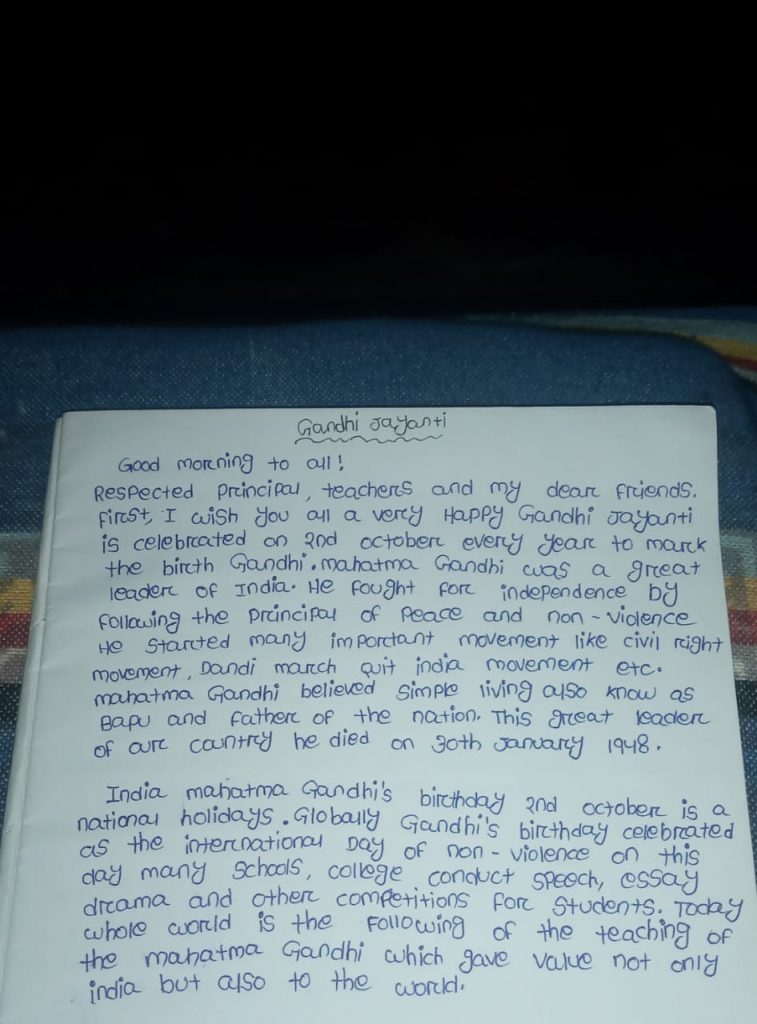 Gandhi Jayanti
Good morning to all!
Respected principal, teachers and my dear friends.
first, I wish you all a very Happy Gandhi Jayanti
is celebrated on 2nd october every year to mark
the birth Gandhi. mahatma Gandhi was a great
leader of India. He fought for independence by
following the principal of Peace and non-violence
He started many important movement like civil right
movement, Dandi march quit india movement etc.
mahatma Gandhi believed simple living also know as
Bapu and father of the nation. This great leader
of our cauntry he died on 30th January 1948.
India mahatma Gandhi's birthday 2nd october is a
national holidays. Globally Gandhi's birthday celebrated
as the international Day of non-violence on this
day many schools, college conduct speech, essay
drama and other competitions for students. Today
whole world is the following of the teaching of
the mahatma Gandhi which gave value not only
india but also to the world.